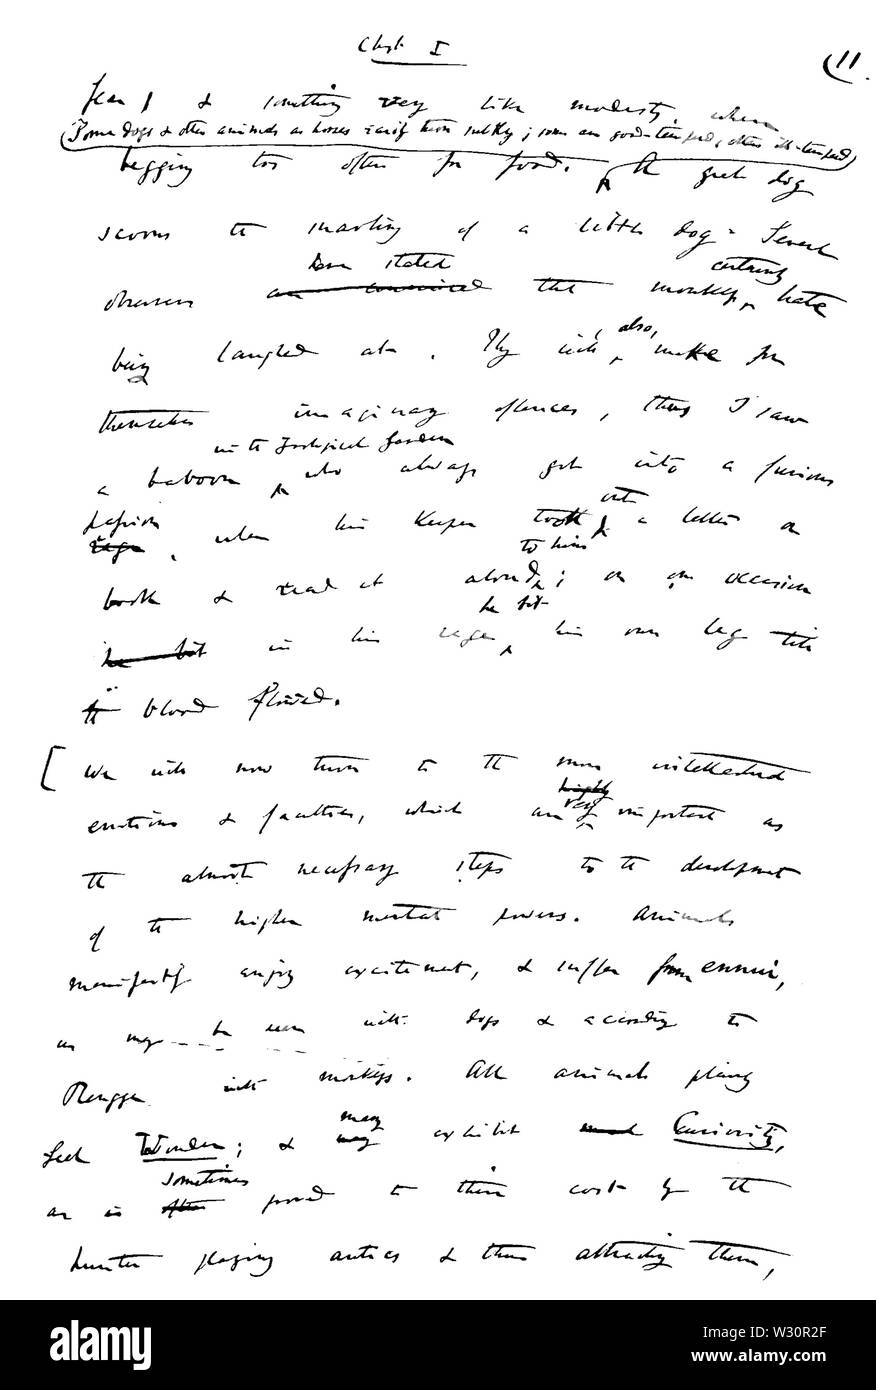 Chapt I
11.
fear, & something very like modesty, when
Some dogs & other animals as horses easily turn sulky; some are good-tempered, others ill-tempered
begging too often for food. A great dog
scorns the snarling of a little dog. Several
have stated certainly
observers are convinced that monkeys hate
being laughed at. They will, also, make for
themselves imaginary offences, thus I saw
in the Zoological Gardens
a baboon, who always got into a furious
passion out
rage, when his keeper took a letter or
to him
book & read it aloud; on one occasion
he bit
he bit in his rage, his own leg till
blood flowed.
[We will now turn to the more intellectual
highly
emotions & faculties, which are very important as
the almost necessary steps to the development
of the higher mental powers. Animals
manifestly enjoy excitement, & suffer from ennui,
as may be seen with dogs & according to
Rengger with monkeys. All animals plainly
many
feel Wonder; & may exhibit much Curiosity,
sometimes
as is often proved to their cost by the
hunter playing antics & thus attracting them,
alamy
Image ID: W30R2F
www.alamy.com